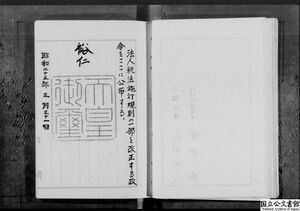 法人税法施行規則の一部を改正する政
令をここに公布する。
裕仁
天皇
御璽
昭和二十五年三月三十一日
国立公文書館
National Archives of Japan